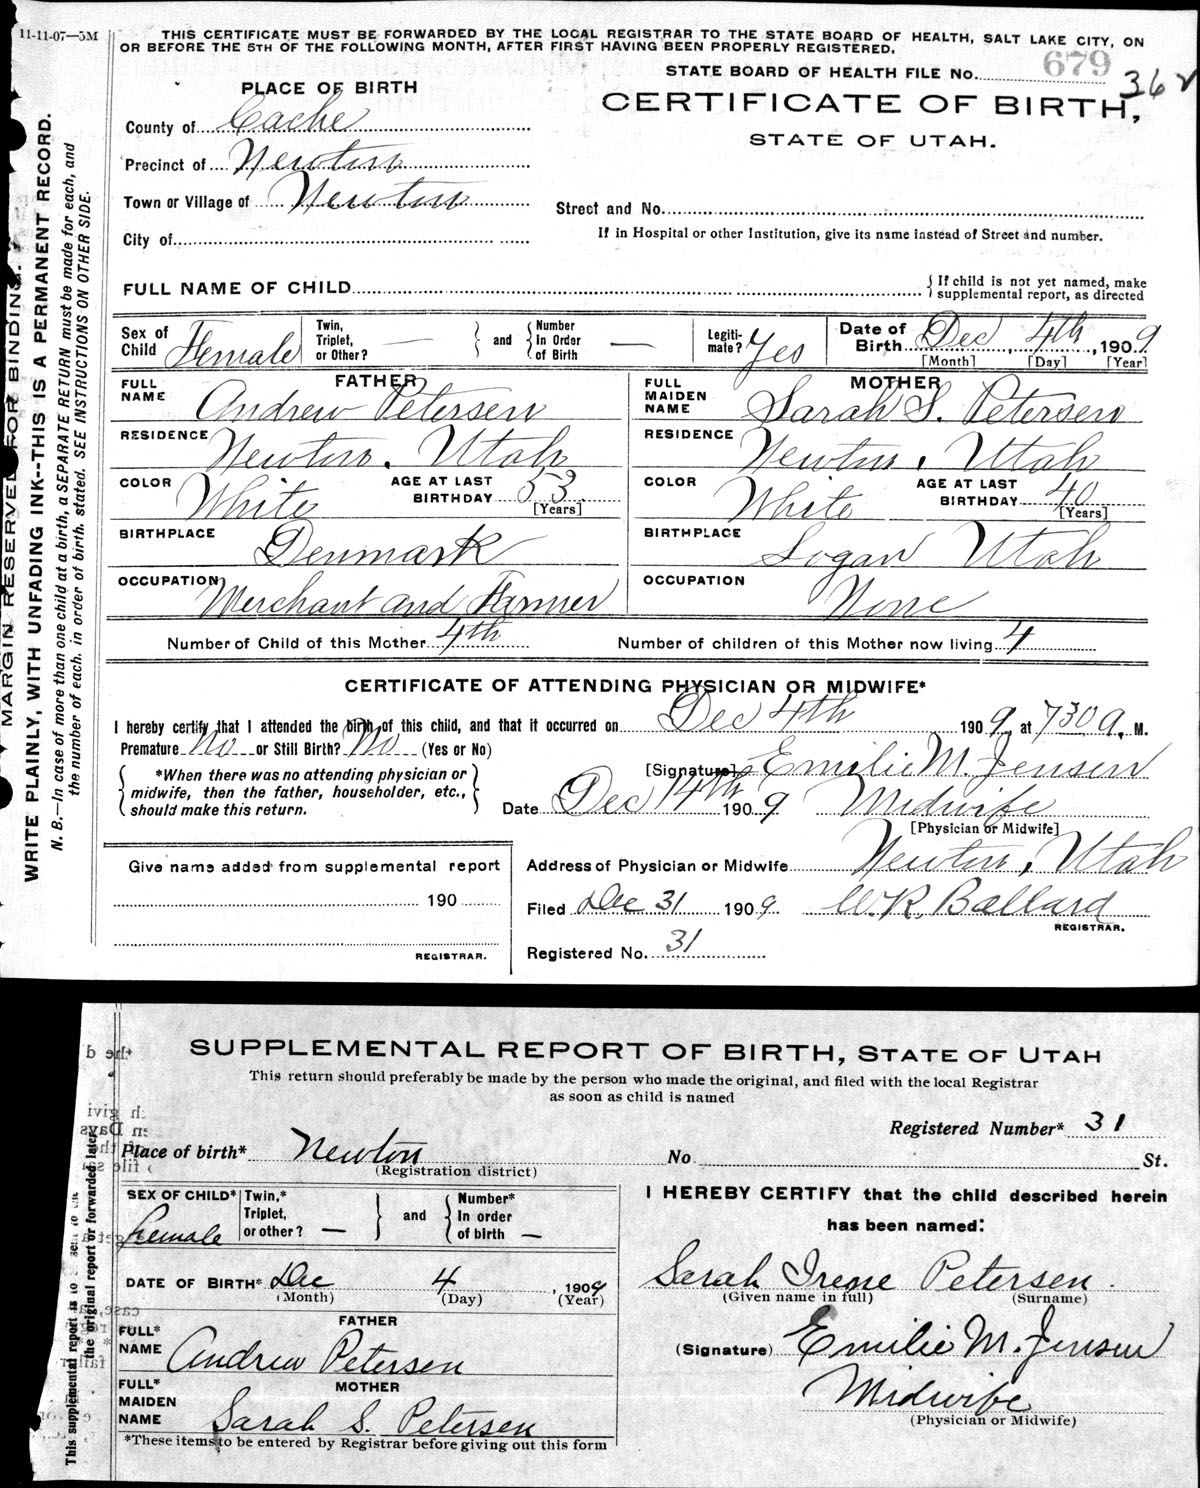 11-11-07—5M
THIS CERTIFICATE MUST BE FORWARDED BY THE LOCAL REGISTRAR TO THE STATE BOARD OF HEALTH, SALT LAKE CITY, ON
OR BEFORE THE 5TH OF THE FOLLOWING MONTH, AFTER FIRST HAVING BEEN PROPERLY REGISTERED.
STATE BOARD OF HEALTH FILE No. 679 362
PLACE OF BIRTH
CERTIFICATE OF BIRTH,
STATE OF UTAH.
County of Cache
Precinct of Newton
Town or Village of Newton
City of
Street and No.
If in Hospital or other Institution, give its name instead of Street and number.
FULL NAME OF CHILD
{ If child is not yet named, make
supplemental report, as directed
Sex of Child Female
Twin, Triplet, or Other? —
and
Number In Order of Birth —
Legitimate? Yes
Date of Birth Dec 4th, 1909
[Month] [Day] [Year]
FATHER
FULL NAME Andrew Petersen
RESIDENCE Newton, Utah
COLOR White
AGE AT LAST BIRTHDAY 53 [Years]
BIRTHPLACE Denmark
OCCUPATION Merchant and Farmer
MOTHER
FULL MAIDEN NAME Sarah S. Petersen
RESIDENCE Newton, Utah
COLOR White
AGE AT LAST BIRTHDAY 40 [Years]
BIRTHPLACE Logan Utah
OCCUPATION None
Number of Child of this Mother 4th
Number of children of this Mother now living 4
CERTIFICATE OF ATTENDING PHYSICIAN OR MIDWIFE*
I hereby certify that I attended the birth of this child, and that it occurred on Dec 4th 1909, at 730 a. M.
Premature No or Still Birth? No (Yes or No)
*When there was no attending physician or
midwife, then the father, householder, etc.,
should make this return.
[Signature] Emilie M. Jensen
Date Dec 14th 1909 Midwife
[Physician or Midwife]
Give name added from supplemental report
190
REGISTRAR.
Address of Physician or Midwife Newton, Utah
Filed Dec 31 1909 W.R. Ballard
REGISTRAR.
Registered No. 31
MARGIN RESERVED FOR BINDING.
WRITE PLAINLY, WITH UNFADING INK--THIS IS A PERMANENT RECORD.
N. B.—In case of more than one child at a birth, a SEPARATE RETURN must be made for each, and
the number of each, in order of birth, stated. SEE INSTRUCTIONS ON OTHER SIDE.
SUPPLEMENTAL REPORT OF BIRTH, STATE OF UTAH
This return should preferably be made by the person who made the original, and filed with the local Registrar
as soon as child is named
Registered Number* 31
Place of birth* Newton
(Registration district)
No. St.
SEX OF CHILD* Female
Twin,* Triplet, or other? —
and
Number* In order of birth —
DATE OF BIRTH* Dec 4, 1909
(Month) (Day) (Year)
FATHER
FULL* NAME Andrew Petersen
MOTHER
FULL* MAIDEN NAME Sarah S. Petersen
*These items to be entered by Registrar before giving out this form
I HEREBY CERTIFY that the child described herein
has been named:
Sarah Irene Petersen.
(Given name in full) (Surname)
(Signature) Emilie M. Jensen
Midwife
(Physician or Midwife)
This supplemental report is to
the original report or forwarded later.